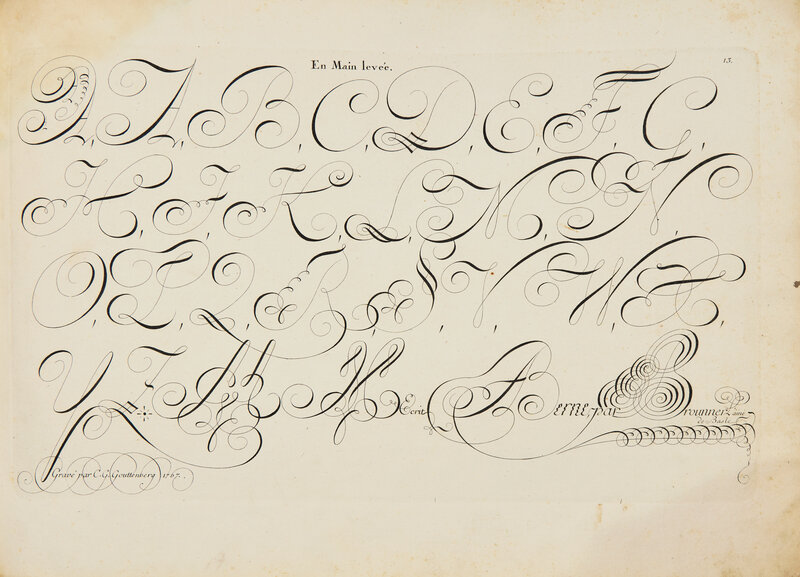 En Main leveé.
13.
A, A, B, C, D, E, F, G,
H, I, K, L, M, N,
O, Q, R, S, V, W, X
Y Z M H Ecrit A Berne, par Brounner
de Basle
Gravé par C. G. Gouttenberg 1767.